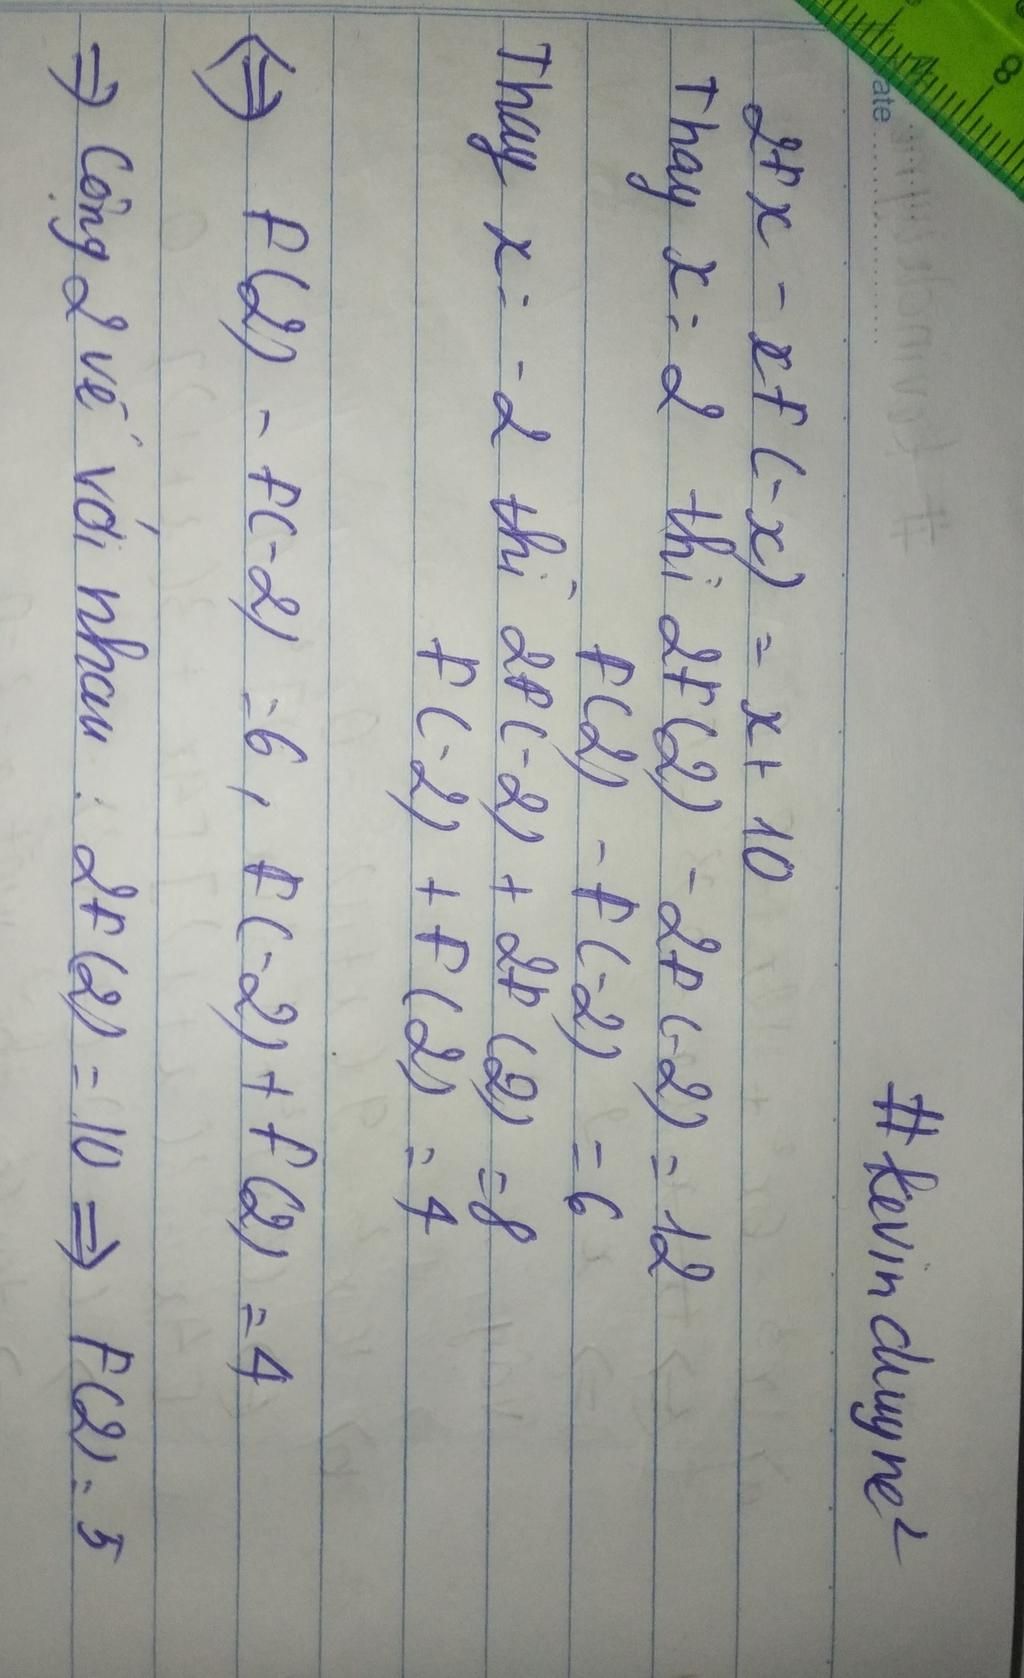 ate
8
#kevin duyne²
2fx - xf(-x) = x + 10
Thay x = 2 thì 2f(2) - 2f(-2) = 12
f(2) - f(-2) = 6
Thay x = -2 thì 2f(-2) + 2f(2) = 8
f(-2) + f(2) = 4
⇔ f(2) - f(-2) = 6, f(-2) + f(2) = 4
⇒ Cộng 2 vế với nhau : 2f(2) = 10 ⇒ f(2) = 5